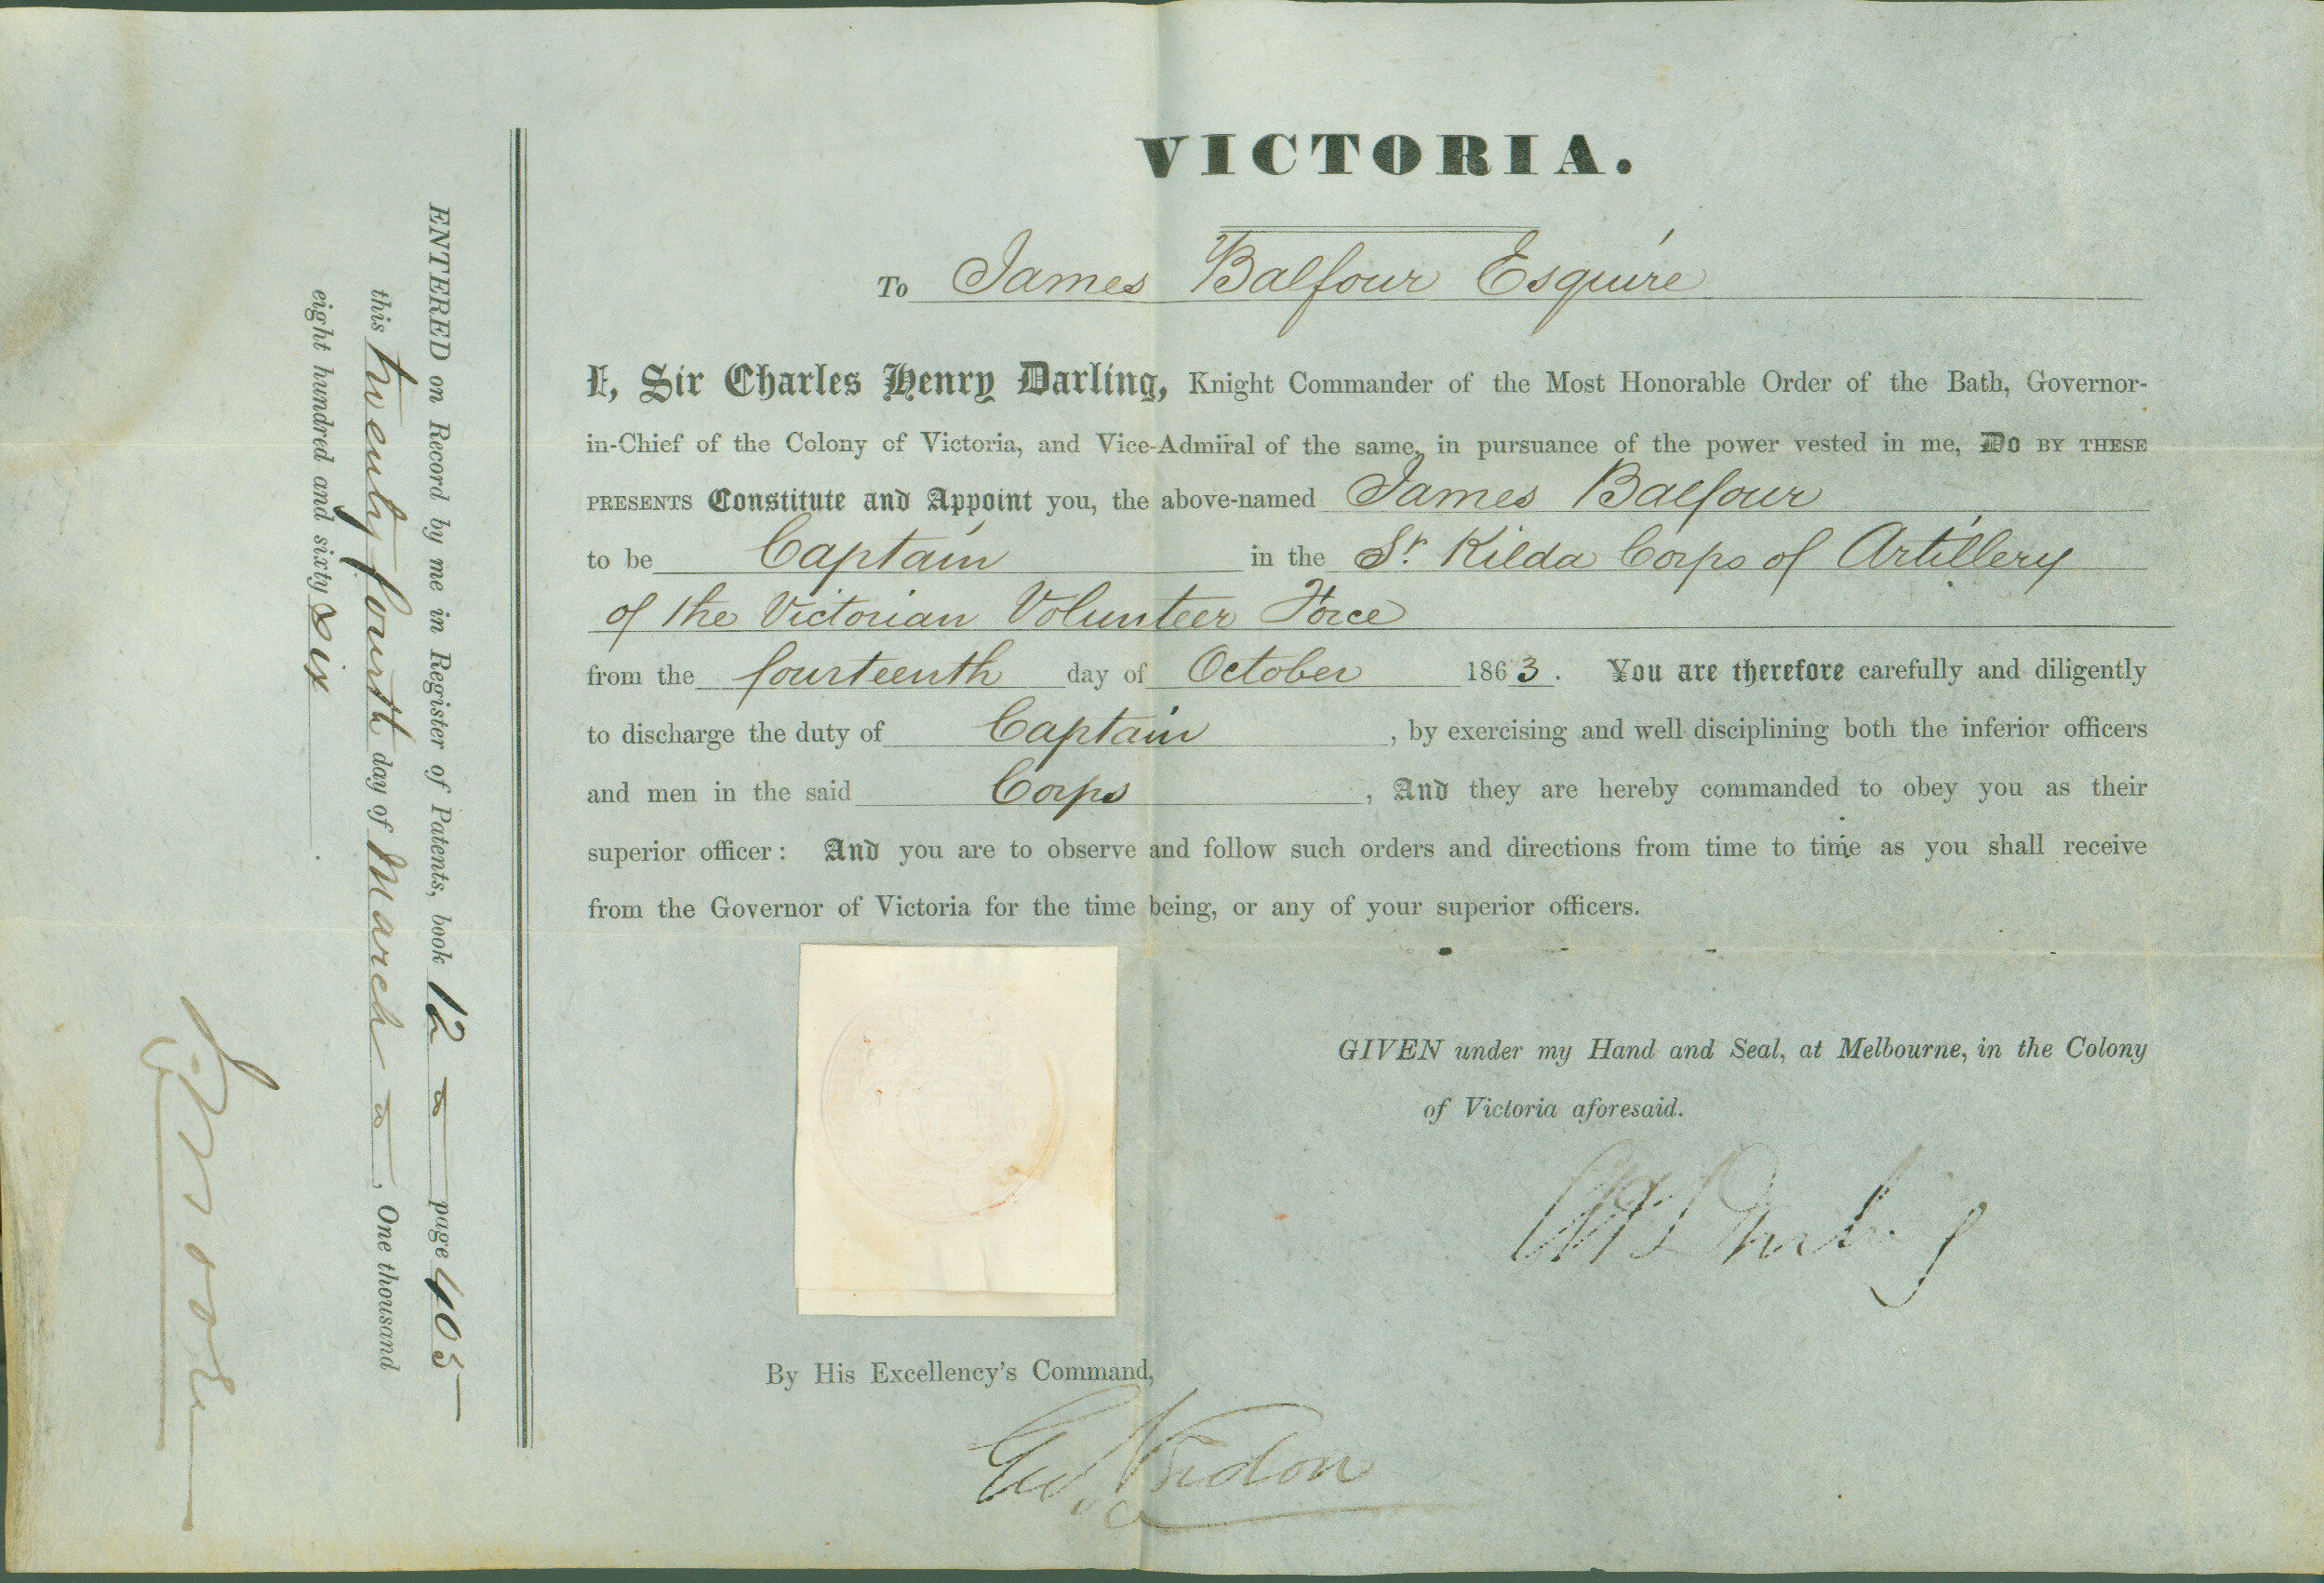 VICTORIA.
To James Balfour Esquire
I, Sir Charles Henry Darling, Knight Commander of the Most Honorable Order of the Bath, Governor-
in-Chief of the Colony of Victoria, and Vice-Admiral of the same, in pursuance of the power vested in me, Do BY THESE
PRESENTS Constitute and Appoint you, the above-named James Balfour
to be Captain in the St. Kilda Corps of Artillery
of the Victorian Volunteer Force
from the fourteenth day of October 1863. You are therefore carefully and diligently
to discharge the duty of Captain, by exercising and well disciplining both the inferior officers
and men in the said Corps, And they are hereby commanded to obey you as their
superior officer: And you are to observe and follow such orders and directions from time to time as you shall receive
from the Governor of Victoria for the time being, or any of your superior officers.
GIVEN under my Hand and Seal, at Melbourne, in the Colony
of Victoria aforesaid.
C H Darling
By His Excellency's Command,
Geo Verdon
ENTERED on Record by me in Register of Patents, book 12 page 405
this twenty fourth day of March, One thousand
eight hundred and sixty Six.